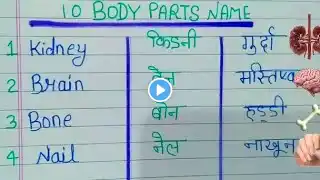 10 BODY PARTS NAME
1 Kidney किडनी गुर्दा
2 Brain ब्रेन मस्तिष्क
3 Bone बोन हड्डी
4 Nail नेल नाखून